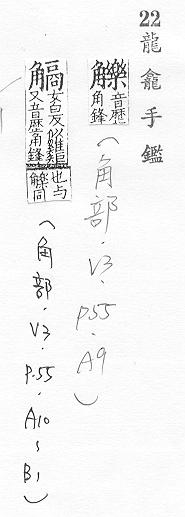 22 龍龕手鑑
觻 音歷
角鋒
(角部.V3.P.55.A9)
又音歷角鋒
也与
觻同
(角部.V3.P.55.A10~B1)